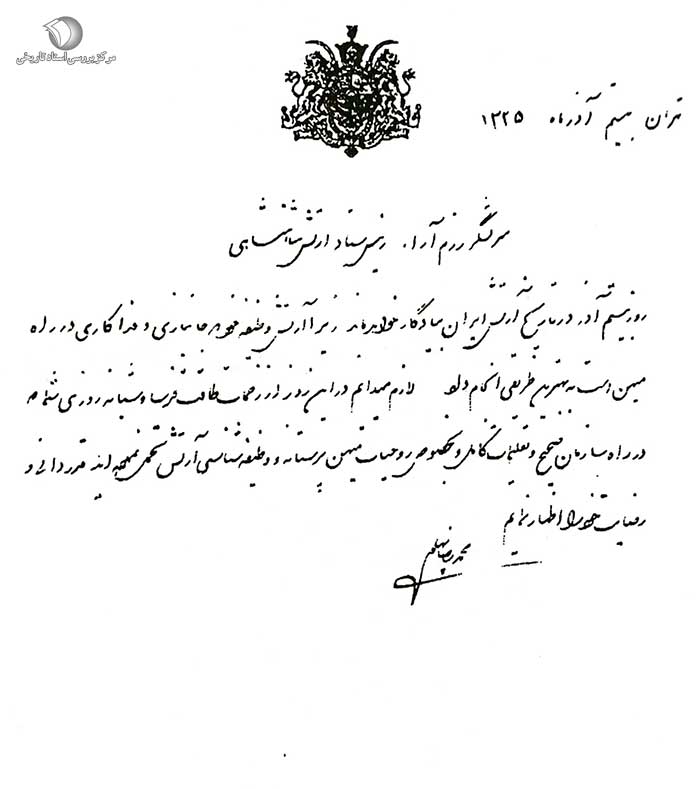 مرکز بررسی اسناد تاریخی
تهران بیستم آذر ماه ۱۳۲۵
سرلشگر رزم آرا، رئیس ستاد ارتش شاهنشاهی
روز بیستم آذر در تاریخ ارتش ایران بیادگار خواهد ماند زیرا ارتش وظیفه خود و جانبازی و فداکاری در راه
میهن است به بهترین طریقی انجام داد لازم میدانم در این روز از زحمات طاقت فرسا و شبانه روزی شما که
در راه سازمان صحیح و تعلیمات کامل و بخصوص روحیات میهن پرستانه و وظیفه شناسی ارتش متحمل شده اید قدردانی و
رضایت خود را اظهار نمایم
محمدرضا پهلوی